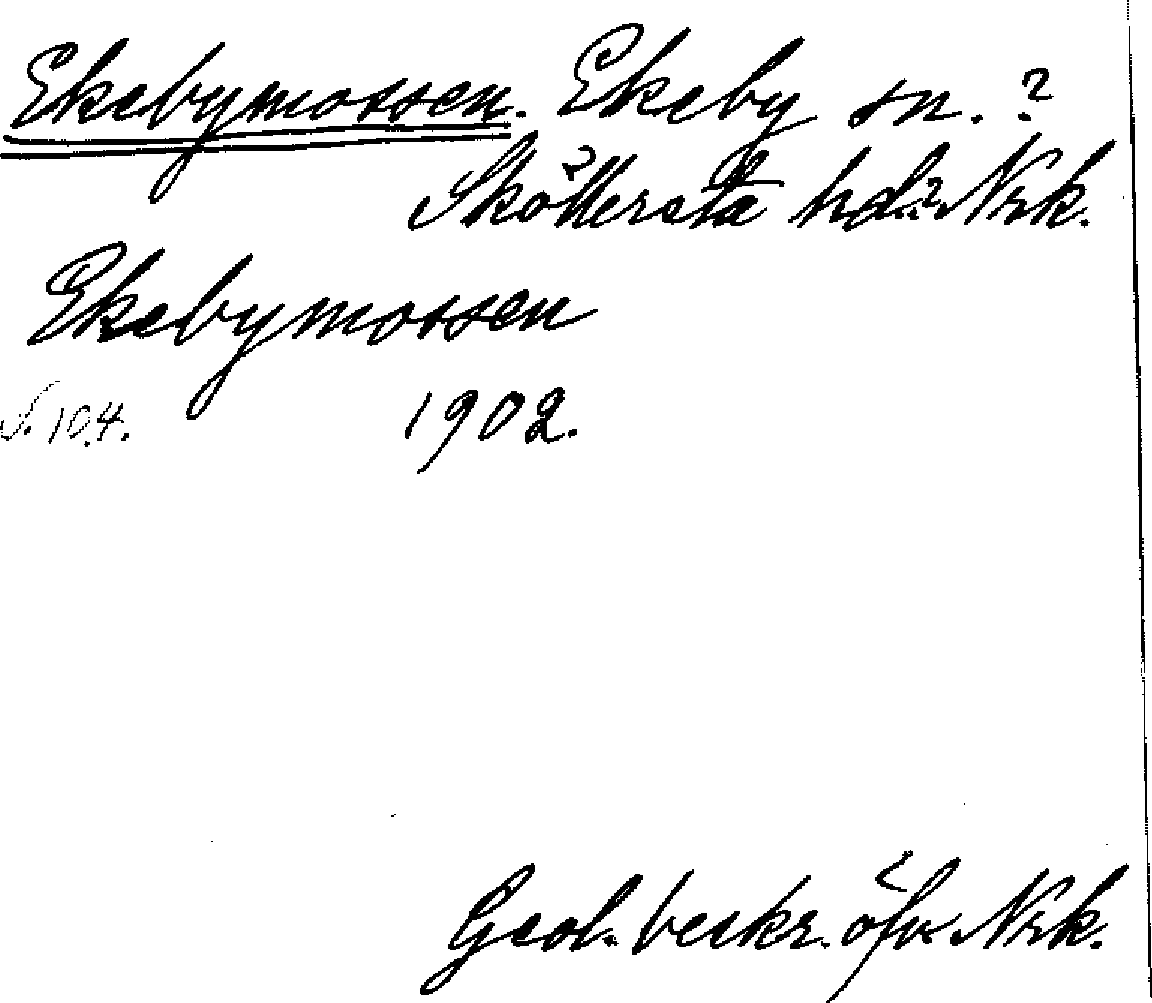 Ekebymossen. Ekeby sn. ?
Sköllersta hd.? Nrk.
Ekebymossen
S. 104. 1902.
Geol. beskr. öfv. Nrk.